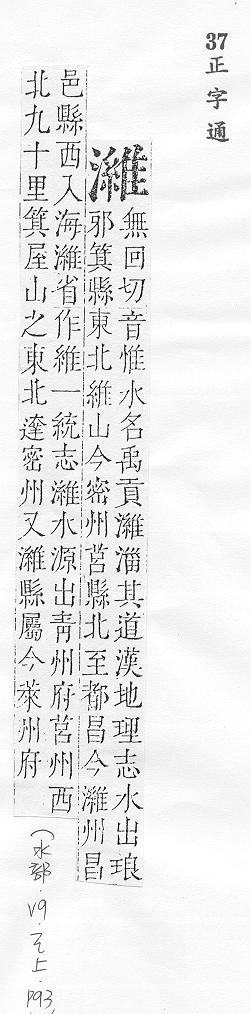 37
正字通
濰
無回切音惟水名禹貢濰淄其道漢地理志水出琅
邪箕縣東北維山今密州莒縣北至都昌今濰州昌
邑縣西入海濰省作維一統志濰水源出靑州府莒州西
北九十里箕屋山之東北達密州又濰縣屬今萊州府
(水部.V9.巳上.P93,